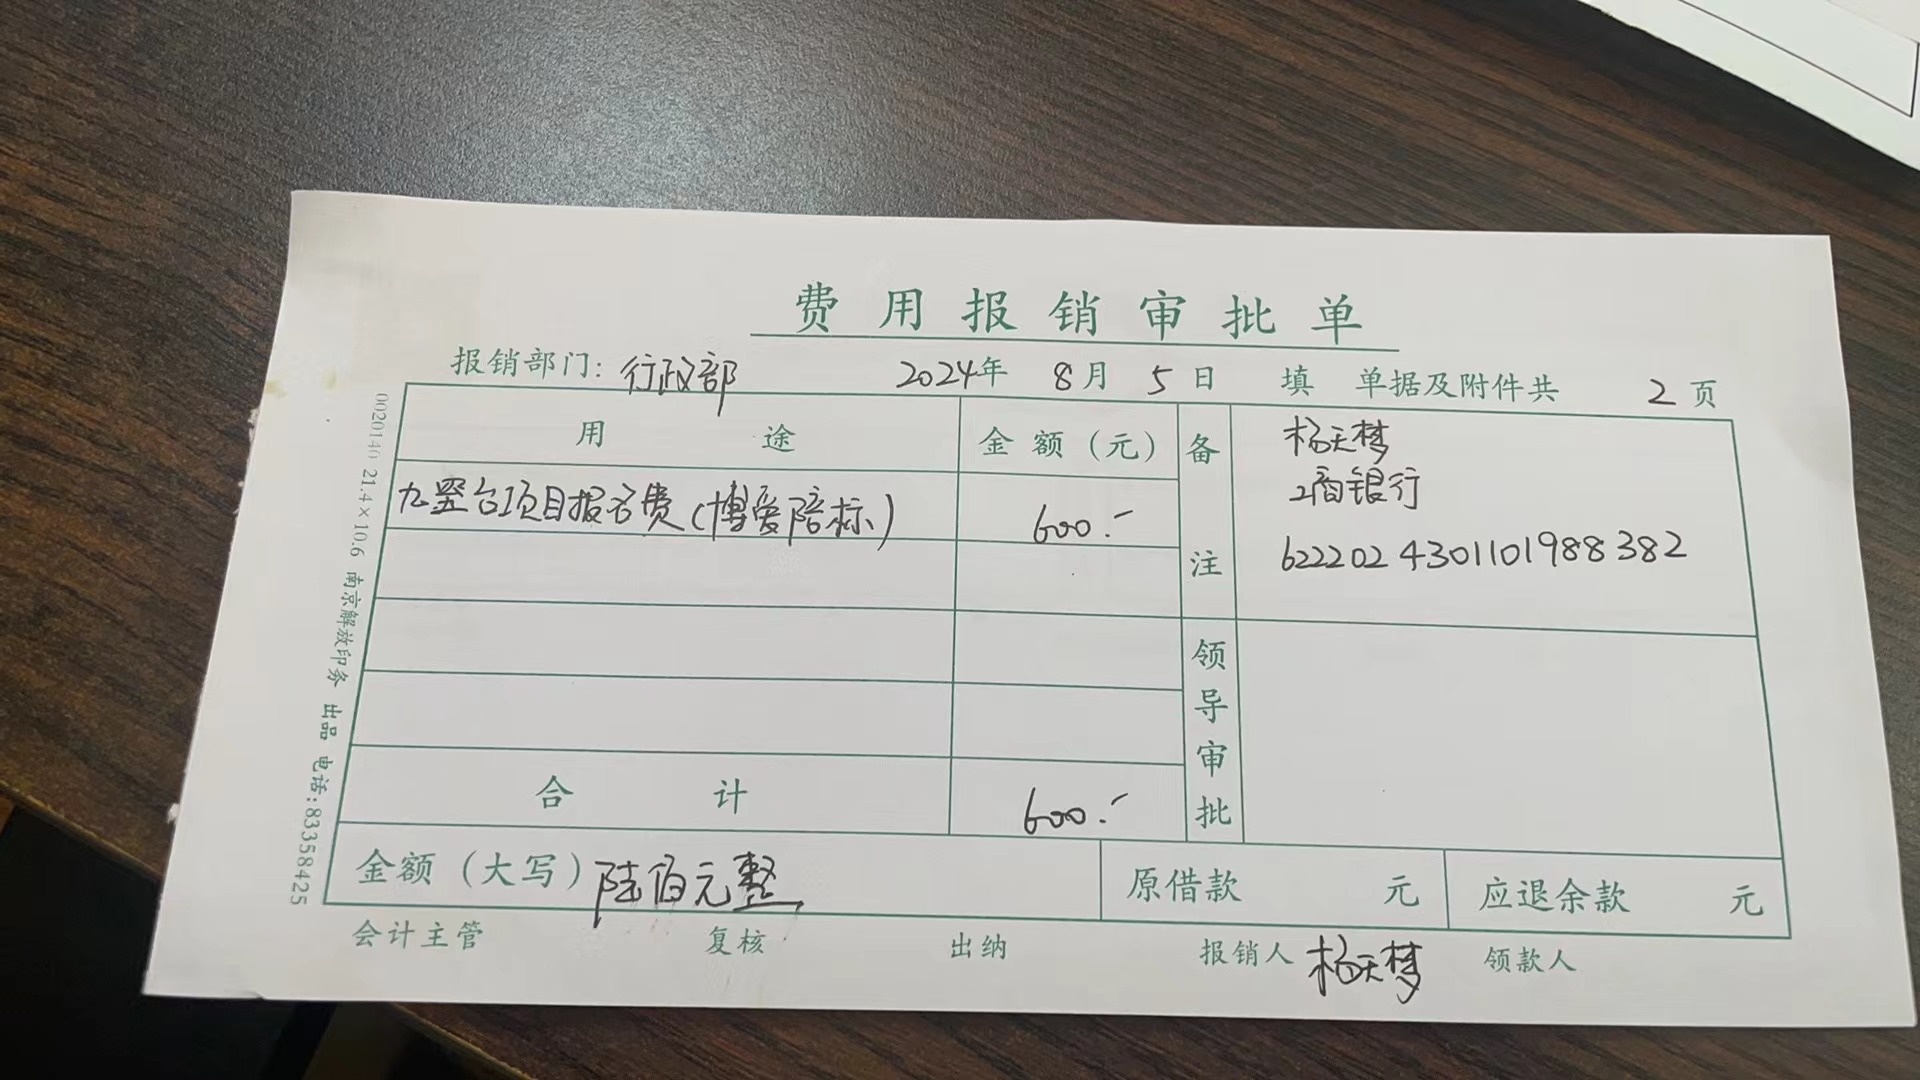 费用报销审批单
报销部门: 行政部 2024年 8月 5日 填 单据及附件共 2 页
用途 金额(元) 备注
杨天梦
工商银行
6222024301101988382
九墅台项目报名费(博爱陪标) 600.-
领导审批
合计 600.-
金额(大写) 陆佰元整 原借款 元 应退余款 元
会计主管 复核 出纳 报销人 杨天梦 领款人
0020140 21.4×10.6 南京解放印务 出品 电话:83358425